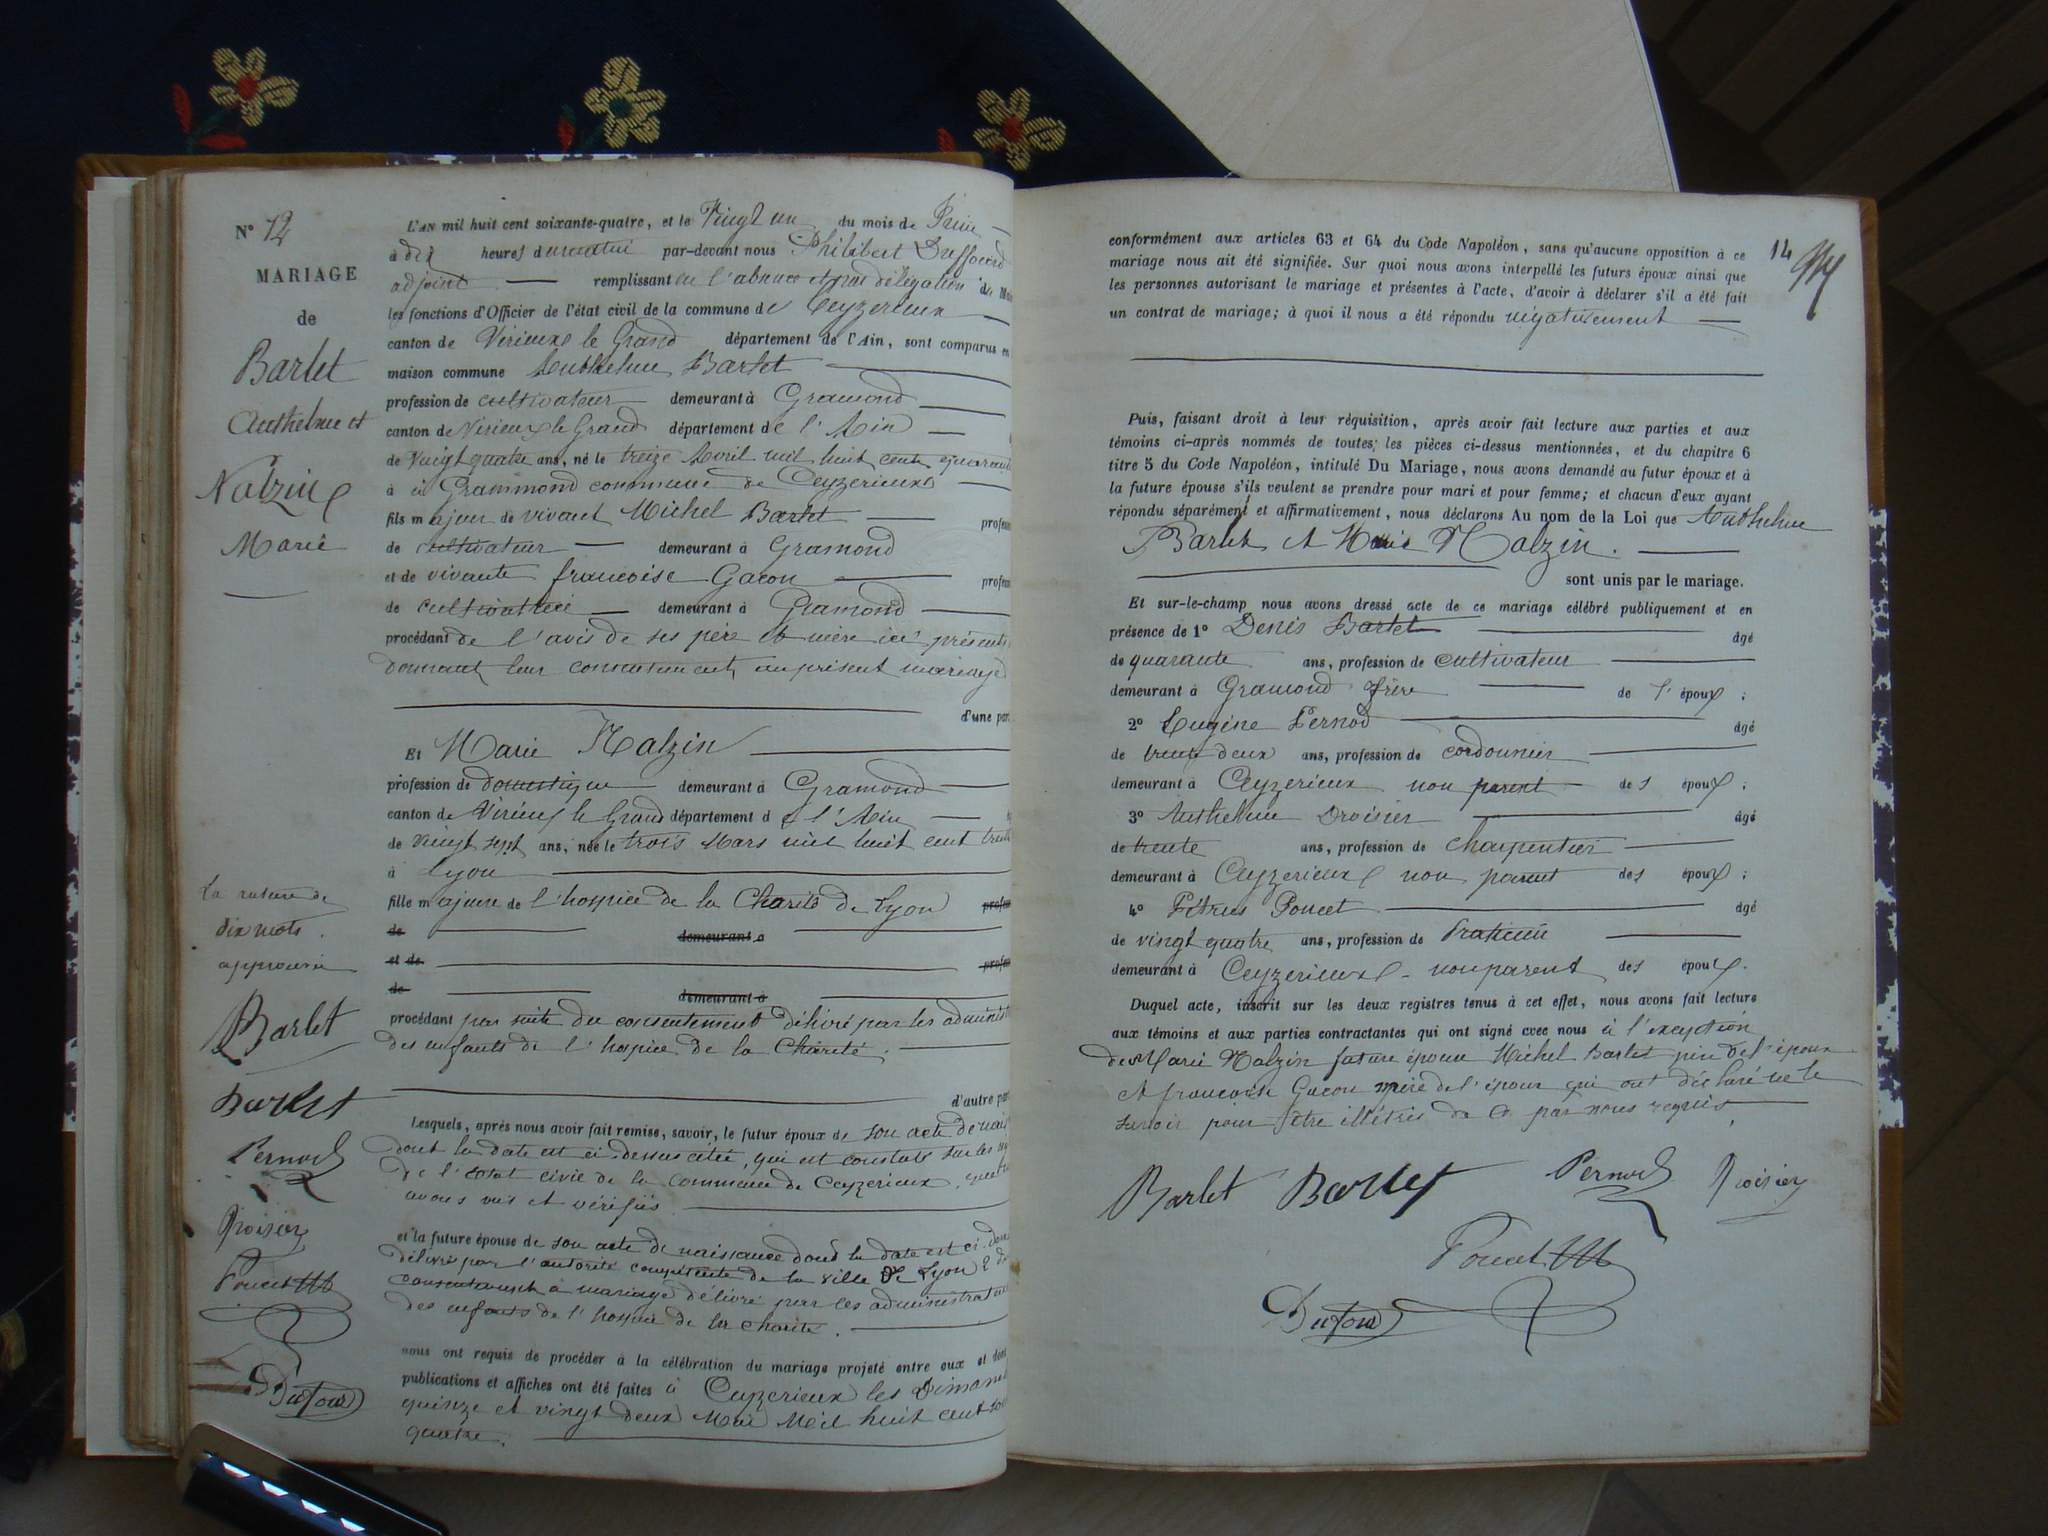 N° 12
MARIAGE
de
Barlet
Anthelme et
Nalzin
Marie
L'AN mil huit cent soixante-quatre, et le Vingt un du mois de Juin
à dix heures du matin par-devant nous Philibert Duffourd
adjoint remplissant en l'absence et par délégation du Maire
les fonctions d'Officier de l'état civil de la commune de Ceyzerieux
canton de Virieux le Grand département de l'Ain, sont comparus en
maison commune Anthelme Barlet
profession de cultivateur demeurant à Gramond
canton de Virieux le Grand département de l'Ain
de Vingt quatre ans, né le treize Avril mil huit cent quarante
à Grammond commune de Ceyzerieux
fils majeur de vivant Michel Barlet profes
de cultivateur demeurant à Gramond
et de vivante francoise Gacon profes
de cultivatrice demeurant à Gramond
procédant de l'avis de ses père et mère ici présents
donnant leur consentement au présent mariage
d'une par
Et Marie Nalzin
profession de domestique demeurant à Gramond
canton de Virieux le Grand département de l'Ain
de vingt sept ans, née le trois Mars mil huit cent trente
à Lyon
fille majeure de l'hospice de la Charité de Lyon profes
de demeurant à
et de profes
de demeurant à
procédant par suite du consentement délivré par les administ
des enfants de l'hospice de la Charité.
d'autre par
La rature de
dix mots
approuvée
Barlet
Barlet
Pernod
Droisier
Poncet
Dufour
Lesquels, après nous avoir fait remise, savoir, le futur époux de son acte de nais
dont la date est ci-dessus citée, qui est constaté sur les
de l'Etat civil de la commune de Ceyzerieux, que
avons vus et vérifiés
et la future épouse de son acte de naissance dont la date est ci-des
délivré par l'autorité compétente de la ville de Lyon 2° du
consentement à mariage délivré par les administrateurs
des enfants de l'hospice de la Charité.
nous ont requis de procéder à la célébration du mariage projeté entre eux et dont
publications et affiches ont été faites à Ceyzerieux les Dimanches
quinze et vingt deux Mai Mil huit cent soi
quatre.
14
conformément aux articles 63 et 64 du Code Napoléon, sans qu'aucune opposition à ce
mariage nous ait été signifiée. Sur quoi nous avons interpellé les futurs époux ainsi que
les personnes autorisant le mariage et présentes à l'acte, d'avoir à déclarer s'il a été fait
un contrat de mariage; à quoi il nous a été répondu négativement
Puis, faisant droit à leur réquisition, après avoir fait lecture aux parties et aux
témoins ci-après nommés de toutes les pièces ci-dessus mentionnées, et du chapitre 6
titre 5 du Code Napoléon, intitulé Du Mariage, nous avons demandé au futur époux et à
la future épouse s'ils veulent se prendre pour mari et pour femme; et chacun d'eux ayant
répondu séparément et affirmativement, nous déclarons Au nom de la Loi que Anthelme
Barlet et Marie Nalzin.
sont unis par le mariage.
Et sur-le-champ nous avons dressé acte de ce mariage célébré publiquement et en
présence de 1° Denis Barlet âgé
de quarante ans, profession de cultivateur
demeurant à Gramond frère de l'époux;
2° Eugène Pernod âgé
de trente deux ans, profession de cordonnier
demeurant à Ceyzerieux non parent des époux;
3° Anthelme Droisier âgé
de trente ans, profession de charpentier
demeurant à Ceyzerieux non parent des époux;
4° Pétrus Poncet âgé
de vingt quatre ans, profession de Praticien
demeurant à Ceyzerieux non parent des époux.
Duquel acte, inscrit sur les deux registres tenus à cet effet, nous avons fait lecture
aux témoins et aux parties contractantes qui ont signé avec nous à l'exception
de Marie Nalzin future épouse Michel Barlet père de l'époux
et francoise Gacon mère de l'époux qui ont déclaré ne le
savoir pour être illétrés de ce par nous requis
Barlet Barlet Pernod Droisier
Poncet
Dufour